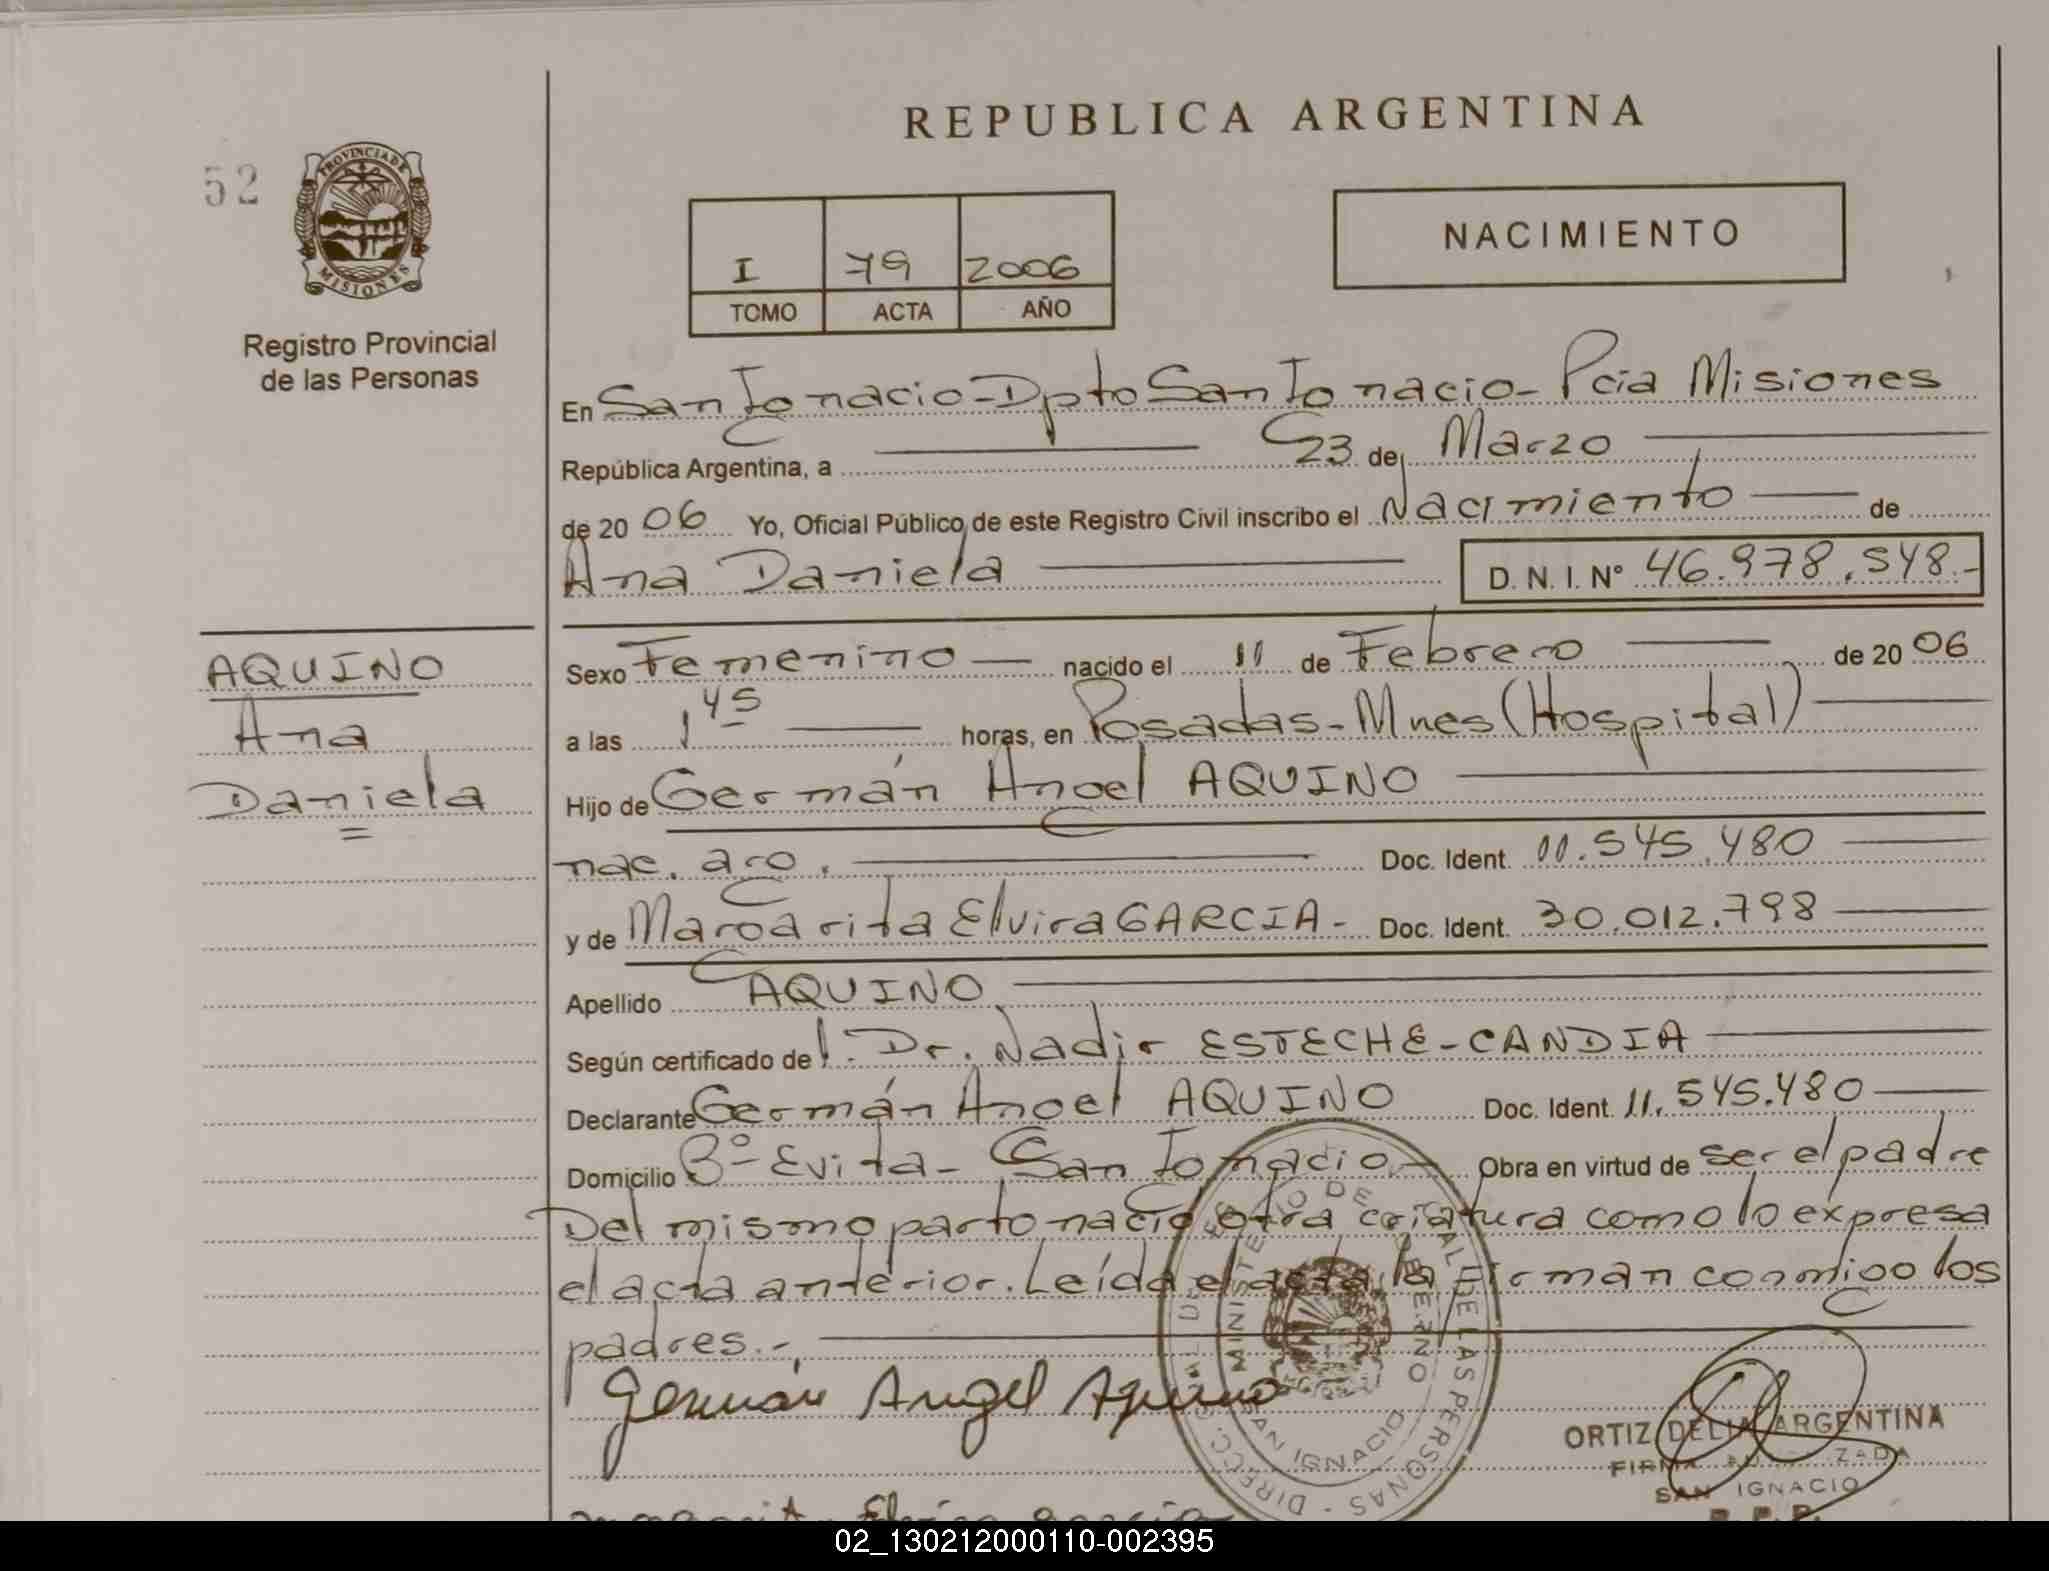 REPUBLICA ARGENTINA
52
PROVINCIA DE
MISIONES
Registro Provincial
de las Personas
NACIMIENTO
I 79 2006
TOMO ACTA AÑO
En San Ignacio-Dpto San Ignacio- Pcia Misiones
República Argentina, a 23 de Marzo
de 2006 Yo, Oficial Público de este Registro Civil inscribo el Nacimiento de
Ana Daniela D. N. I. Nº 46.978.548.-
AQUINO
Ana
Daniela
Sexo Femenino nacido el 11 de Febrero de 2006
a las 1 45 horas, en Posadas-Mnes (Hospital)
Hijo de Germán Angel AQUINO
nac. arg. Doc. Ident. 11.545.480
y de Margarita Elvira GARCIA- Doc. Ident. 30.012.798
Apellido AQUINO
Según certificado de l. Dr. Nadir ESTECHE-CANDIA
Declarante Germán Angel AQUINO Doc. Ident. 11.545.480
Domicilio Bº Evita- San Ignacio.- Obra en virtud de ser el padre
Del mismo parto nació otra criatura como lo expresa
el acta anterior. Leída el acta la firman conmigo los
padres.-
Germán Angel Aquino
MINISTERIO DE GOBIERNO
SAN IGNACIO
DE LAS PERSONAS - DIRECC.
ORTIZ DELIA ARGENTINA
SAN IGNACIO
R.P.P.
Elvira Garcia
02_130212000110-002395